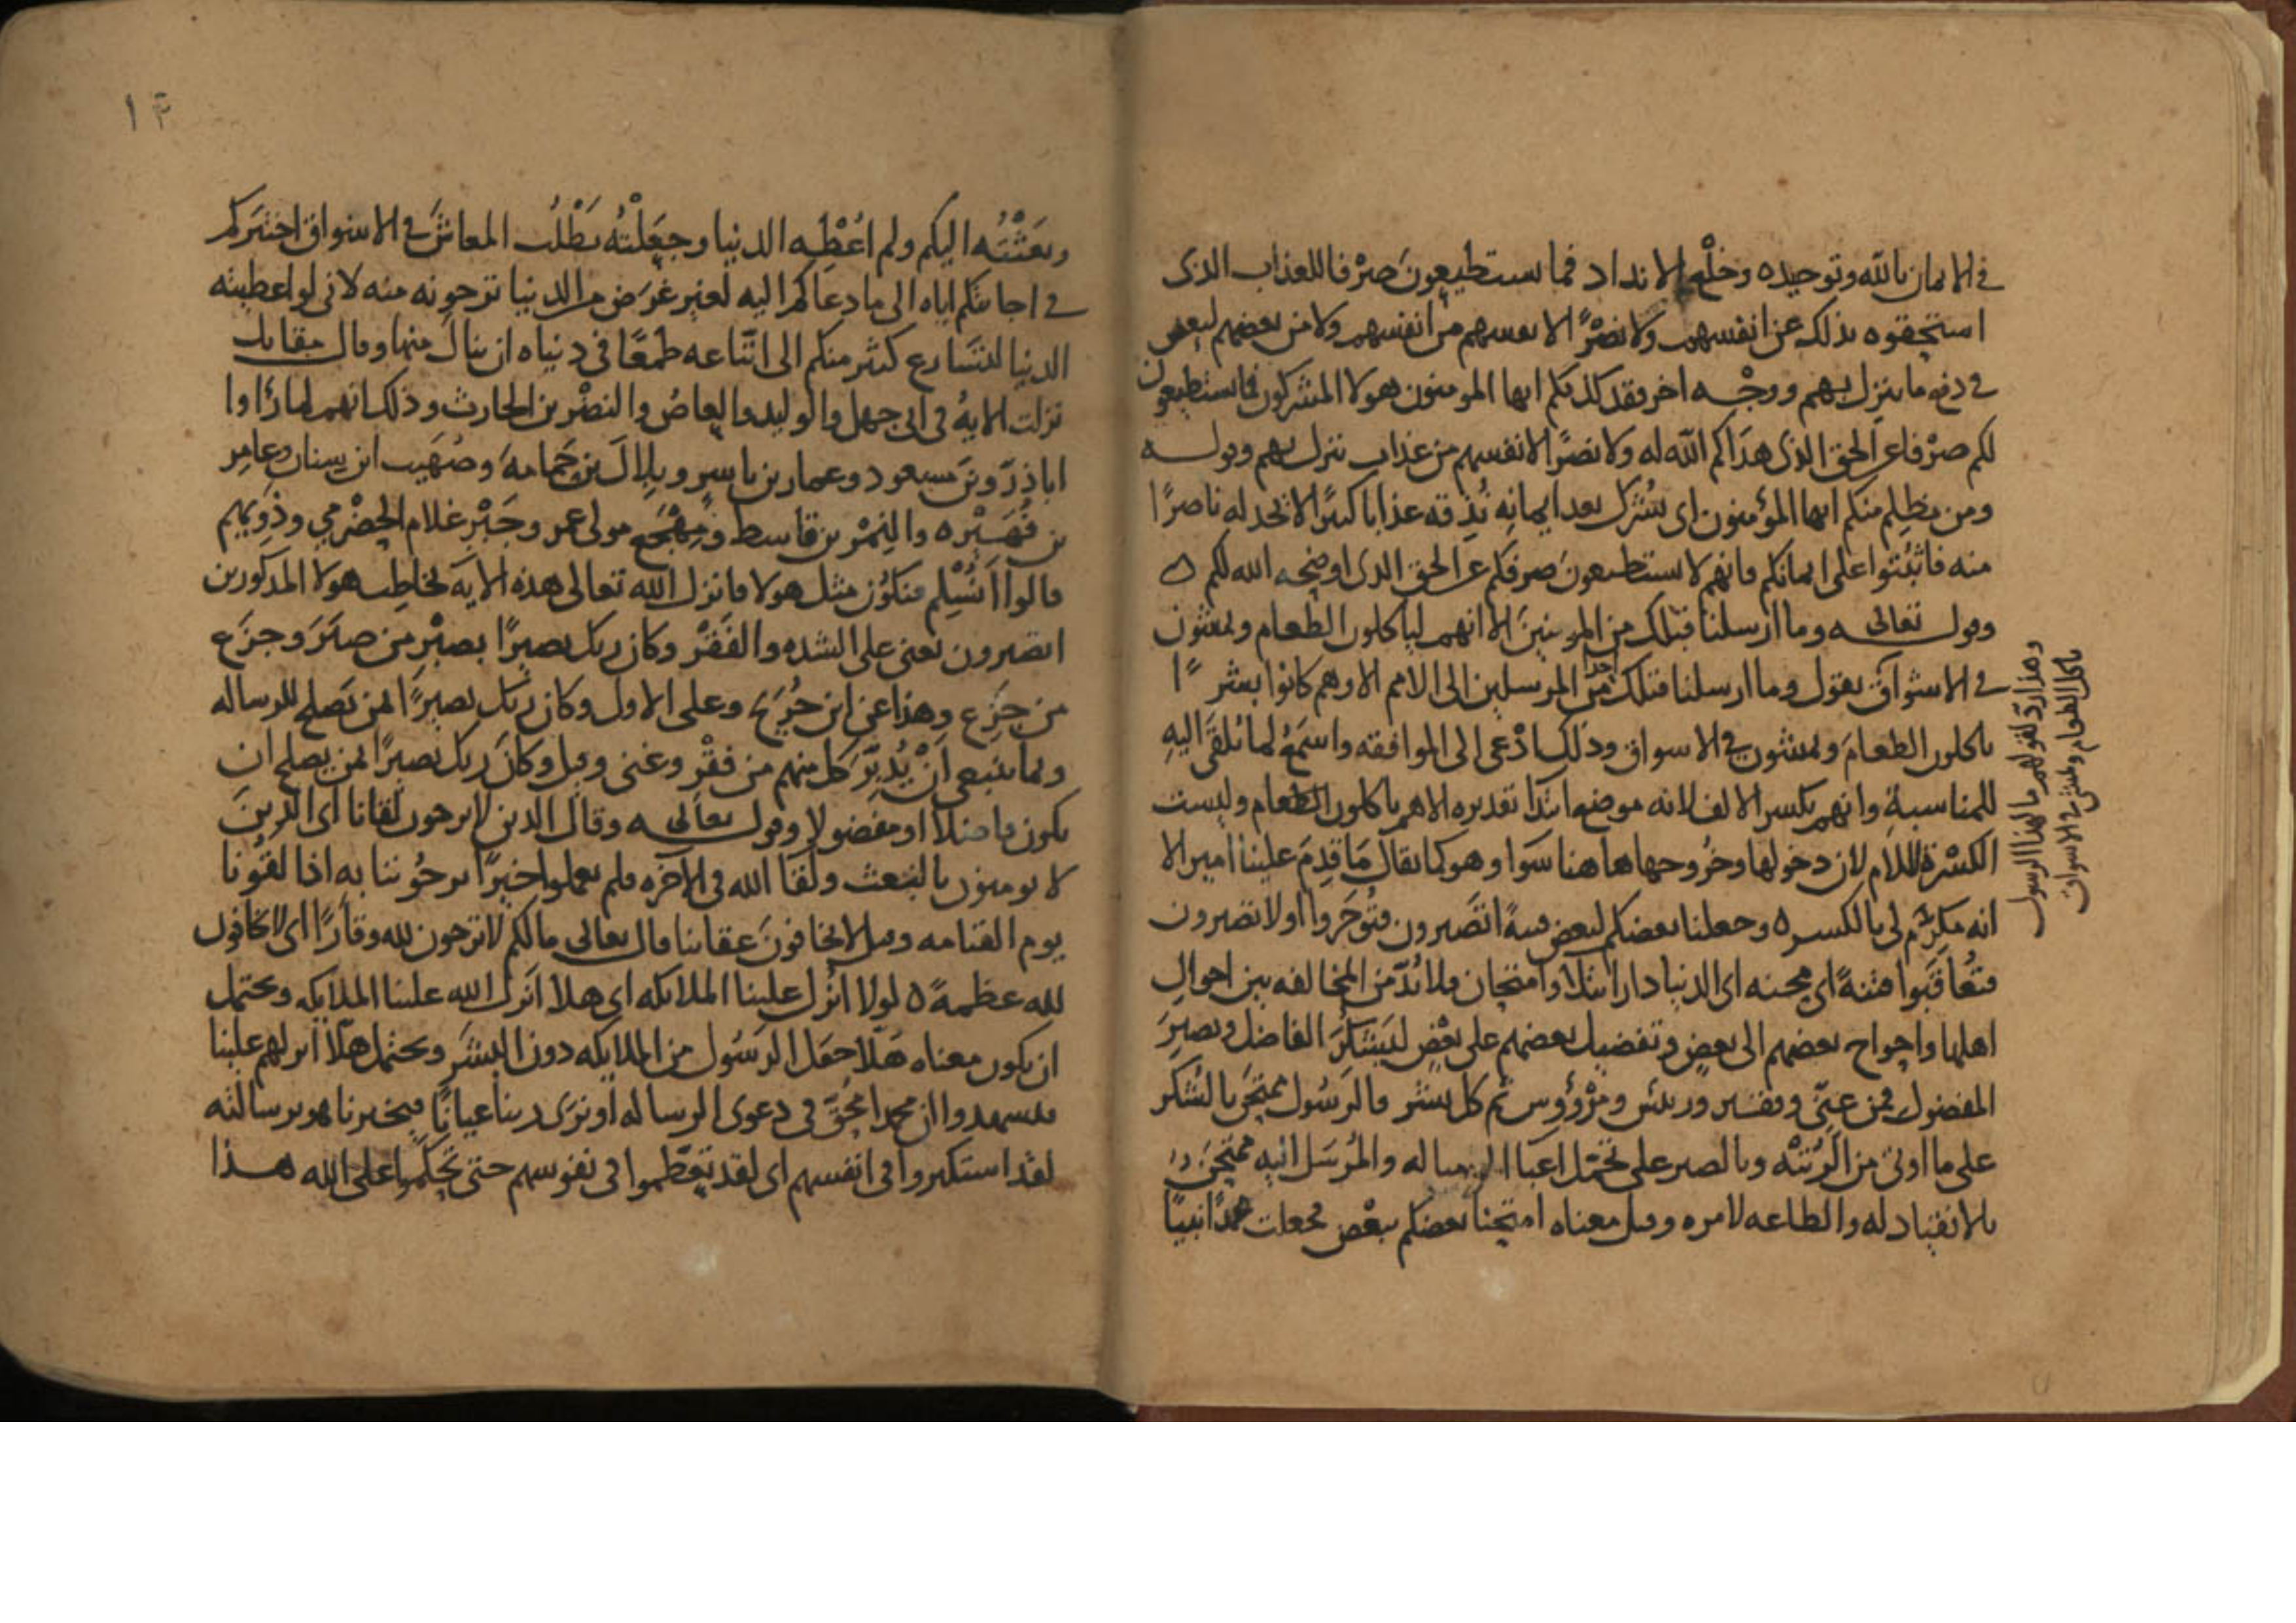 في الايمان بالله وتوحيده وخلْع الانداد فما يستطيعونَ صرْفا للعذاب الذى
استحقوه بذلك عن انفسهم ولا نصْرًا لانفسهم من انفسهم ولا من بعضهم لبعض
في دفع ما ينزل بهم ووجْه اخر فقد كذبكم ايها المومنون هولا المشركون فما يستطيعون
لكم صرْفا عن الحق الذى هَدَاكم الله له ولا نصرًا لانفسهم من عذاب ينزل بهم وقوله
ومن يظلم منكم ايها المؤمنون اى يُشرك بعد ايمانِه نُذِقه عذابا كبيرًا لا تجد له ناصرًا
منه فاثبُتوا على ايمانكم فانهم لا يستطيعونَ صرفكم عن الحق الذى اوضحه الله لكم ه
وقول تعالى وما ارسلنا قبلك من المرسلينَ الا انهم لياكلون الطعام ويمشون
في الاسْواق يقول وما ارسلنا قبلك احدًا من المرسلين الى الامم الا وهم كانوا بشرًا
ياكلون الطعامَ ويمشون في الاسواق وذلك ادْعى الى الموافقه واسْمَعُ لما يُلقَى اليهِ
للمناسبةِ وانهم بكسر الالف لانه موضع ابتدَا تقديره الا هم ياكلون الطعام وليست
الكسْرة لللام لان دخولها وخُروجها هاهنا سَوا وهو كما يقال مَا قدِمَ علينا امير الا
انه مكرِّم لى بالكسره وجعلنا بعضكم لبعض فتنةً اتصْبرون فتُوجَروا او لا تصْبرون
فتُعاقَبُوا فتنةً اى محنه اى الدنيا دار ابتلاء وامتحان فلا بُدّ من المخالفه بين احوالِ
اهلها واحواج بعضهم الى بعضٍ وتفضيل بعضهم على بعْضٍ ليَشكُرَ الفاضل ويصبِرَ
المفضول فمن غنِىّ وفقير ورئيس ومرْؤُوس ثم كل بشر فالرسُول يمتحَن بالشكر
على ما اوتى من الرُتبْه وبالصبر على تحمّل اعبَا الرساله والمُرسَل اليه ممتحَن
بالانقياد له والطاعه لامره وقيل معناه امتحنا بعضكم ببعْض فجعلت محمدًا نبيًا
وهذا ردّ لقولهم ما لهذا الرسول
ياكل الطعام ويمشى في الاسواق
١٣
وبعَثْتُه اليكم ولم اُعْطِه الدنيا وجعَلْتُه يَطْلُب المعاشَ في الاسواق اختبَركم
في اجابتكم اياه الى ما دعاكم اليه لغير غرَضٍ من الدنيا ترجونه منه لانى لو اعطيته
الدنيا لتسَارع كثير منكم الى اتّباعه طمعًا فى دنياه ان ينالَ منها وقال مقاتل
نزلت الايهُ فى ابى جهل والوليد والعاص والنضْر بن الحارث وذلك انهم لما رَاوا
اباذرّ وبن مسعود وعمار بن ياسر وبلِالَ بن حَمامهَ وصُهَيب ابن سنان وعامِر
بن فُهَيْره والنِمْر بن قاسط ومِهْجَع مولى عمر وجَبْر غلام الحضْرمي وذَوِيهم
قالوا اَنُسْلِم فنكوُن مثل هولا فانزل الله تعالى هذه الايه يخاطب هولا المذكورين
اتصْبرون يعنى على الشده والفَقْر وكان ربك بصيرًا بصبْر من صبَرَ وجزَع
من جزِع وهذا عن ابن جُرَيْج وعلى الاول وكان ربك بصيرًا لمن يَصلح للرساله
وبما ينبغى اَنْ يُدبّر كل منهم من فقْر وغنى وقيل وكانَ ربك بصيرًا لمن يصلح ان
يكون فاضلا او مفضولا وقول تعالى وقال الذين لا يرجون لقانا اى الذينَ
لا يومنون بالبَعث ولقَا الله فى الآخره فلم يعملوا خيرًا يرجُون ثوابه اذا لقُونا
يوم القيامه وقيل لا يخافونَ عقابنا قال تعالى ما لكم لا ترجون لله وقارًا اى لا تخافون
لله عظمةً ه لولا انُزل علينا الملايكه اى هلا اَنزل الله علينا الملايكه ويحتمل
ان يكون معناه هَلا جعَل الرسُول من الملايكه دون البشَر ويحتمل هلّا انزلهم علينا
فيشهدوا ان محمدا مُحِقّ فى دعوى الرساله او نرَى ربنا عيانًا فيخبرنا هو برسالته
لقد استكبروا فى انفسهم اى لقد تعَظّموا فى نفوسهم حتى تحكّموا على الله هذا